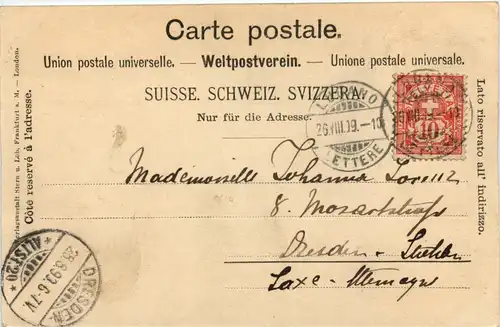 Carte postale.
Union postale universelle. — Weltpostverein. — Unione postale universale.
SUISSE. SCHWEIZ. SVIZZERA.
Nur für die Adresse.
Côté réservé à l'adresse.
Stern u. Löb, Frankfurt a. M. — London.
Lato riservato all' indirizzo.
LUGANO
26.VIII.99.—10
LETTERE
HELVETIA
10
Mademoiselle Johanna Lorenz
8. Mozartstraße
Dresden
Saxe - Allemagne
DRESDEN
ALTST. 20